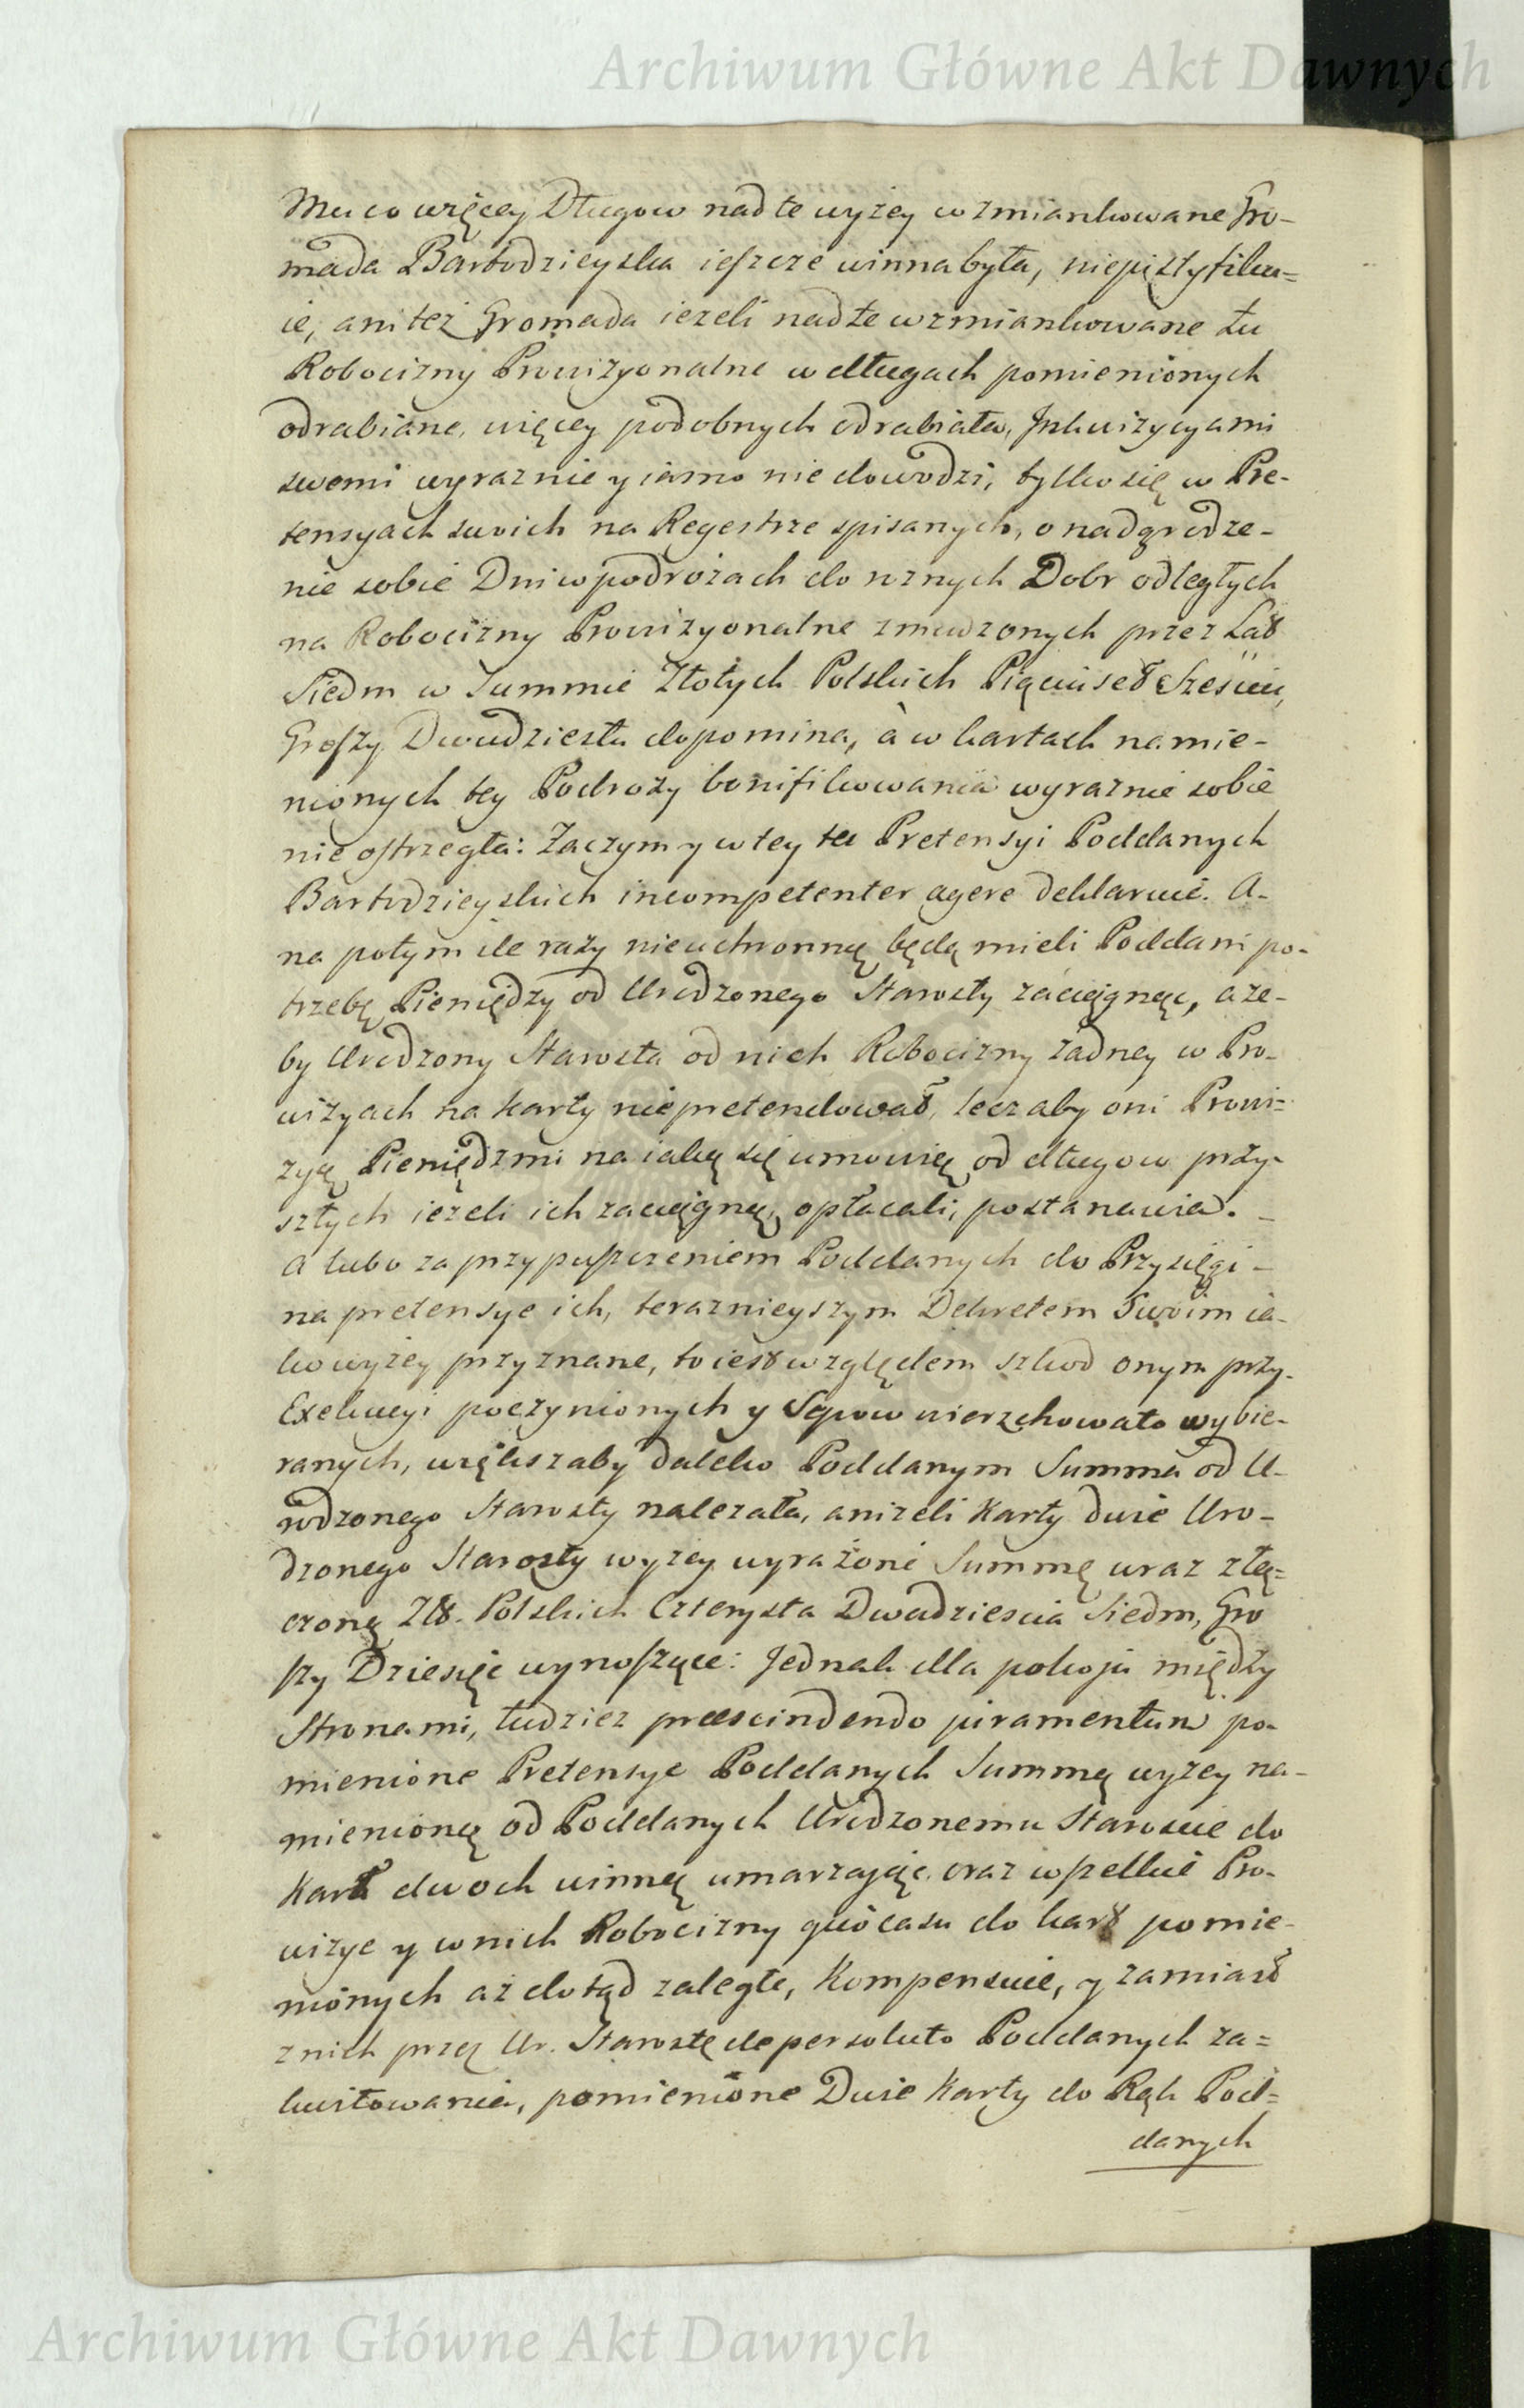 Archiwum Główne Akt Dawnych
Mu co więcey Długow nad te wyżey wzmiankowane Gro-
mada Bartodzieyska ieszcze winna była, nie justyfiku=
ie, ani też Gromada ieżeli nad te wzmiankowane tu
Robocizny Prowizyonalne w długach pomienionych
odrabiane, więcey podobnych odrabiała, Inkwizycyami
swemi wyraznie y iasno nie dowodzi, tylko się w Pre-
tensyach swoich na Regestrze spisanych, o nadgrodze-
nie sobie Dni w podrożach do roznych Dobr odległych
na Robocizny Prowizyonalne zmudzonych przez Lat
Siedm w Summie Złotych Polskich Pięciuset Sześciu,
Groszy Dwudziestu dopomina, à w kartach namie-
nionych tey Podroży bonifikowania wyraznie sobie
nie ostrzegła: Zaczym y w tey tu Pretensyi Poddanych
Bartodzieyskich incompetenter agere deklaruie. A-
na potym ile razy nieuchronną będą mieli Poddani po-
trzebę Pieniędzy od Urodzonego Starosty zaciągnąć, aże-
by Urodzony Starosta od nich Robocizny żadney w Pro-
wizyach na karty nie pretendował, lecz aby oni Prowi=
zyą Pieniędzmi na iaką się umowią od długow przy-
szłych ieżeli ich zaciągną, opłacali, postanawia.
A lubo za przypuszczeniem Poddanych do Przysięgi -
na pretensye ich, teraznieyszym Dekretem Swoim ia-
ko wyżey przyznane, to iest względem szkod onym przy-
Exekucyi poczynionych y Sepow wierzchowato wybie-
ranych, większaby daleko Poddanym Summa od U-
rodzonego Starosty należała, aniżeli Karty dwie Uro-
dzonego Starosty wyżey wyrażone Summę wraz złą=
czoną Zlt. Polskich Czterysta Dwadziescia Siedm, Gro
szy Dziesięć wynoszące: Jednak dla pokoju między
Stronami, tudziez præscindendo juramentum po-
mienione Pretensye Poddanych Summą wyżey na-
mienioną od Poddanych Urodzonemu Staroscie do
Kart dwoch winną umarzaiąc, oraz wszelkie Pro-
wizye y w nich Robocizny quocasu do kart pomie-
nionych aż dotąd zaległe, Kompensuie, y zamiast
z nich przez Ur. Starostę de persoluto Poddanych za=
kwitowania, pomienione Dwie Karty do Rąk Pod=
danych
Archiwum Główne Akt Dawnych